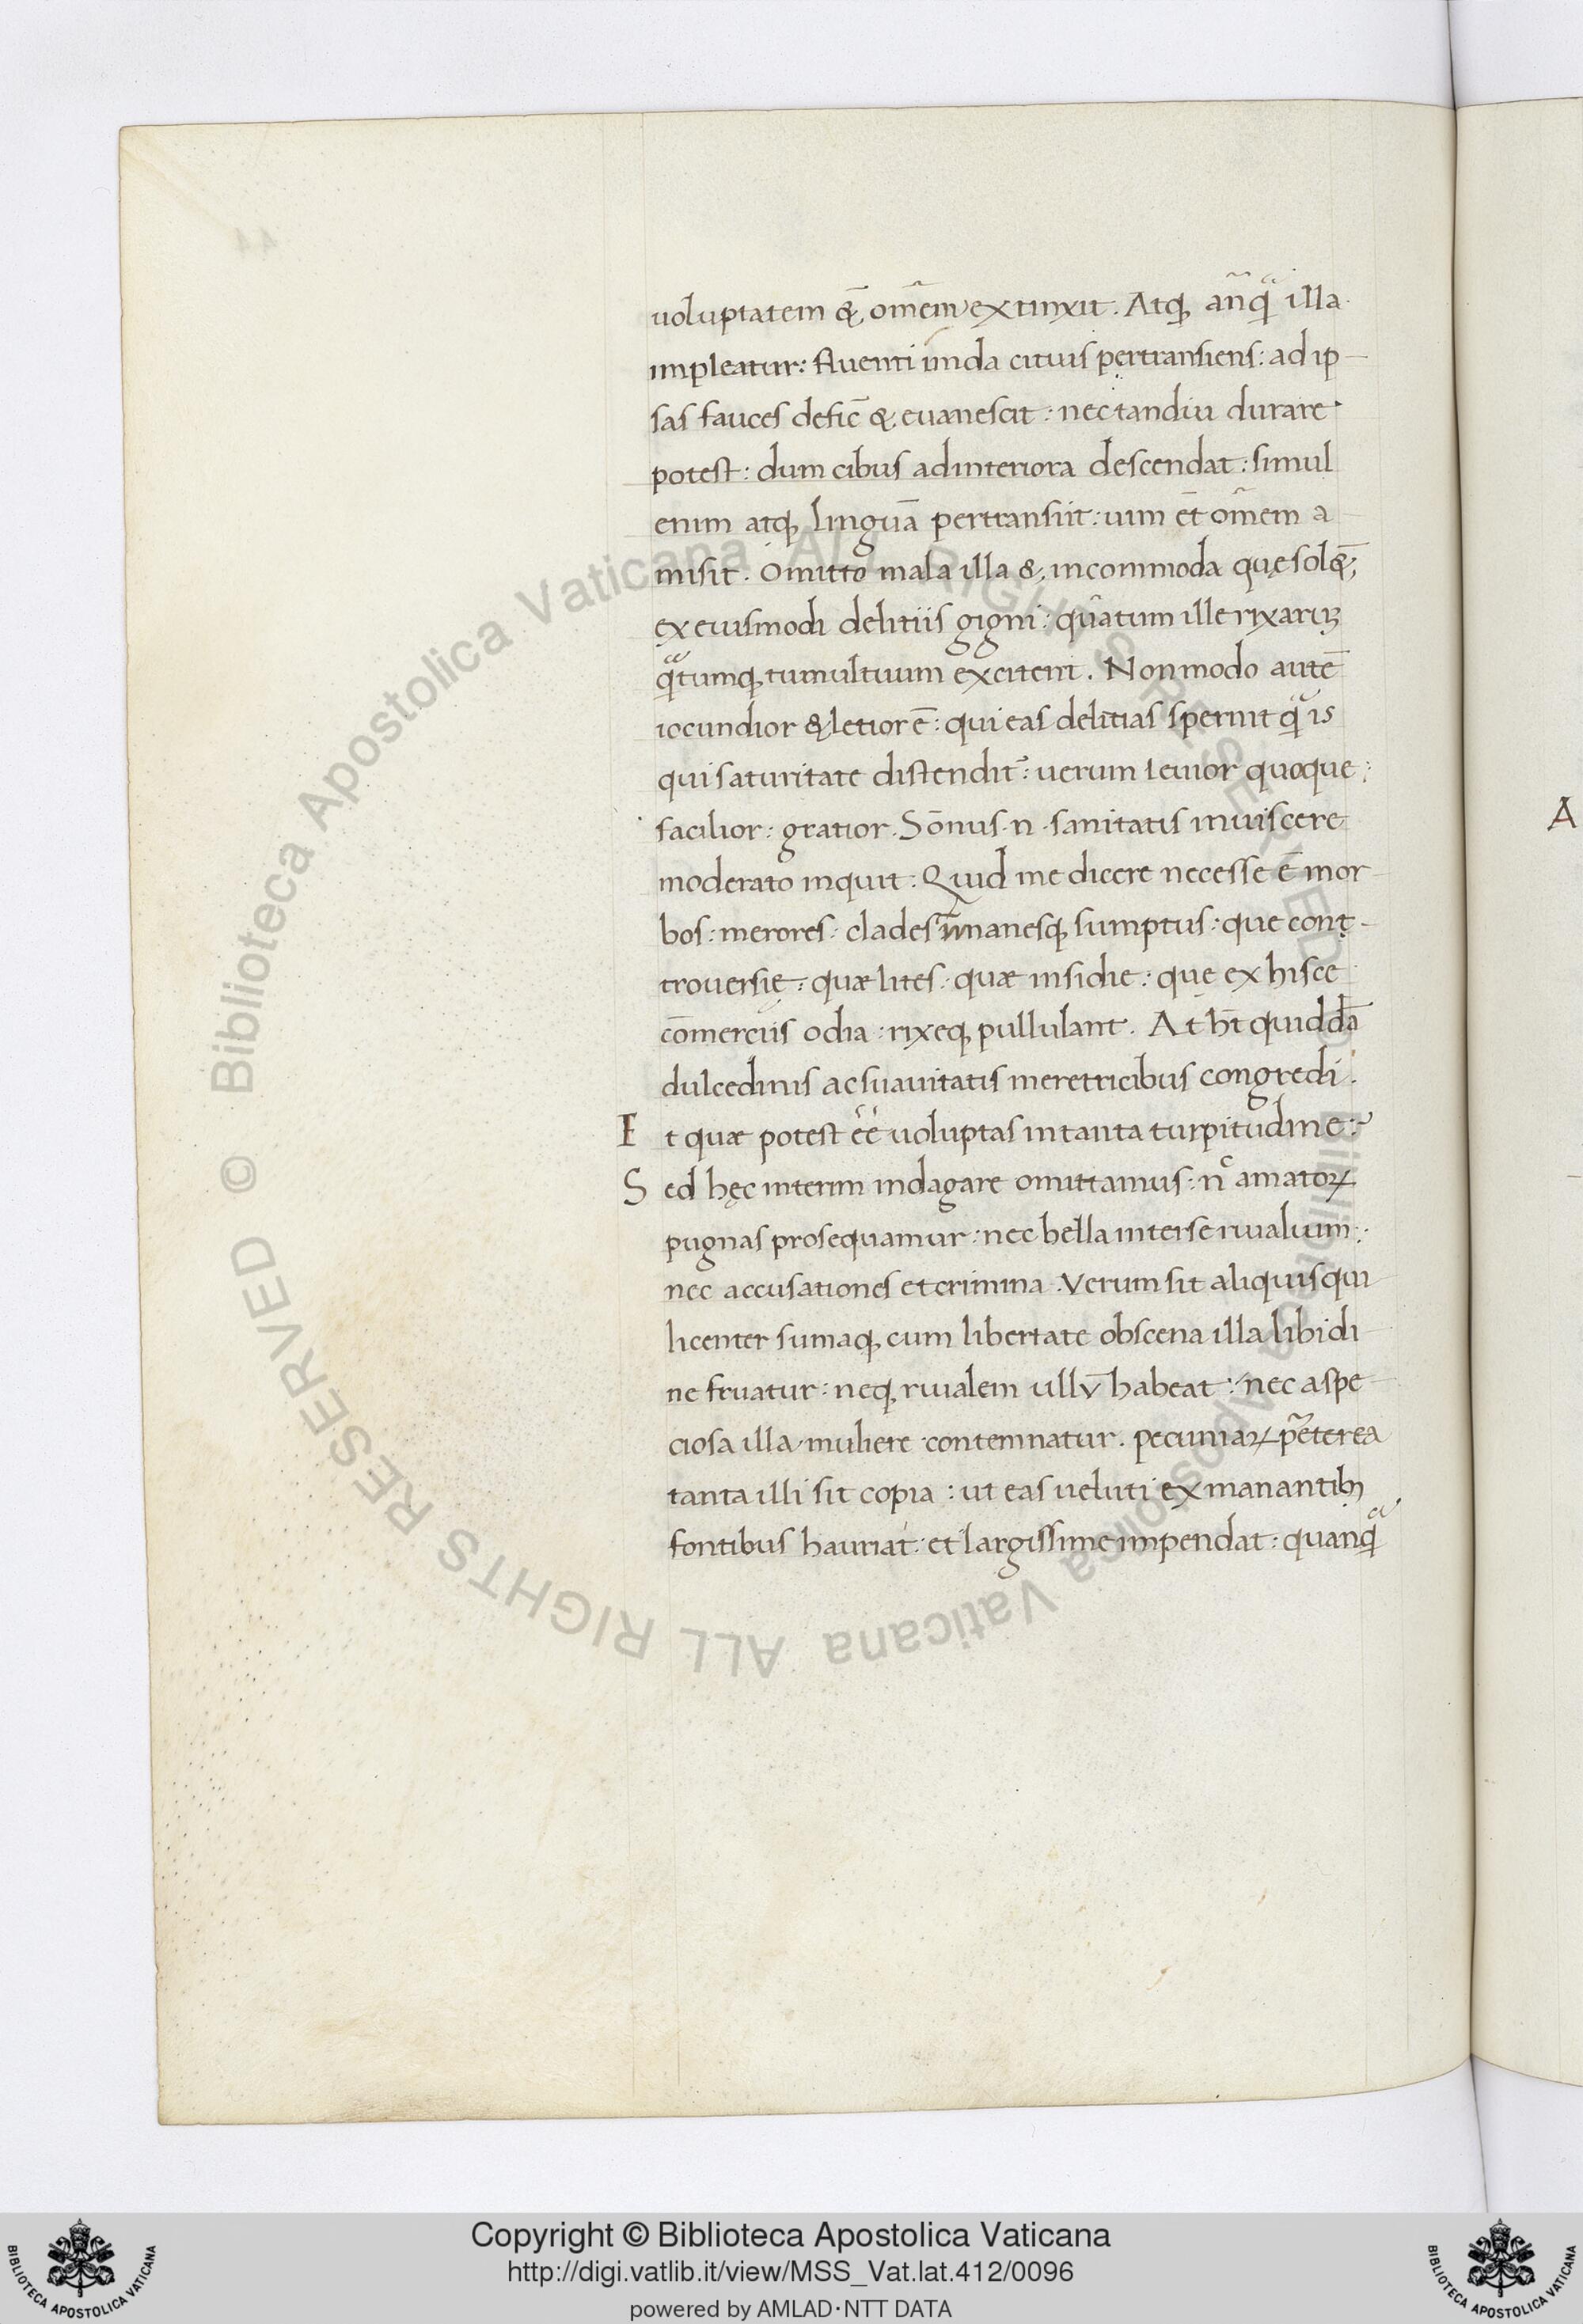 uoluptatem &̄ om̄em extinxit. Atq; an̄qᷓ illa
impleatur: fluenti unda cituis pertransiens: ad ip-
sas fauces defic̄ & euanescit: nec tandiu durare
potest: dum cibus ad interiora descendat: simul
enim atq; linguā pertransiit: uim et̄ om̄em a
misit. Omitto mala illa & incommoda quę sol&̄;
ex eiusmodi delitiis gigni: quātum ille rixarūȝ
qᷓtumq; tumultuum excitent. Non modo autē
iocundior & letior ē: qui eas delitias spernit qᷓ is
qui saturitate distendit̄: uerum leuior quoque:
facilior: gratior. Sōnus .n. sanitatis in uiscere
moderato inquit: Quid me dicere necesse ē mor
bos: merores: clades īmanesq; sumptus: que cont-
trouersię: quæ lites: quæ insidie: quę ex hisce
cōmerciis odia: rixeq; pullulant. At hn̄t quiddā
dulcedinis ac suauitatis meretricibus congredi.
Et quæ potest ēē uoluptas in tanta turpitudine:
Sed hęc interim indagare omittamus: nͨ amatoꝝ
pugnas prosequamur: nec bella inter se riualium:
nec accusationes et crimina. Verum sit aliquis qui
licenter sumaq; cum libertate obscena illa libidi
ne fruatur: neq; riualem ullū habeat: nec a spe
ciosa illa muliere contemnatur. pecuniaꝝ p̄eterea
tanta illi sit copia: ut eas ueluti ex manantibꝫ
fontibus hauriat: et largissime impendat: quanqᷓ
A
Copyright © Biblioteca Apostolica Vaticana
http://digi.vatlib.it/view/MSS_Vat.lat.412/0096
powered by AMLAD·NTT DATA
BIBLIOTECA APOSTOLICA VATICANA
BIBLIOTECA APOSTOLICA VATICANA
© Biblioteca Apostolica Vaticana ALL RIGHTS RESERVED
© Biblioteca Apostolica Vaticana ALL RIGHTS RESERVED